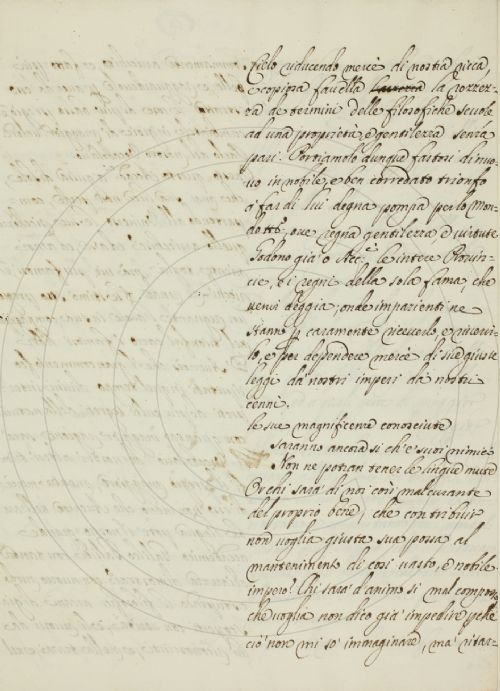 Cielo riducendo mercè di nostra ricca,
e copiosa favella la rozzez-
za de termini delle filosofiche scuole
ad una proprietà, e gentilezza senza
pari. Portiamolo dunque fastosi di nuo-
vo in nobile, e ben corredato trionfo
a far di lui degna pompa per lo Mon-
do tto, ove regna gentilezza, e virtute
Godono già o Acc. le intere Provin-
cie, e i regni della sola fama che
venir deggia; onde impazienti ne
stanno p caramente riceverlo, e riverir-
lo, e per dependere mercè di sue giuste
leggi da nostri imperi da nostri
cenni.
le sue magnificenze conosciute
saranno ancora si ch'e suoi nimici
Non ne potran tener le lingue mute
Or chi sarà di noi così mal curante
del proprio bene, che contribuir
non voglia giusta sua possa al
mantenimento di così vasto, e nobile
impero? Chi sarà d'animo si mal composto
che voglia non dico già impedire pche
ciò non mi so immaginare, ma ritar-